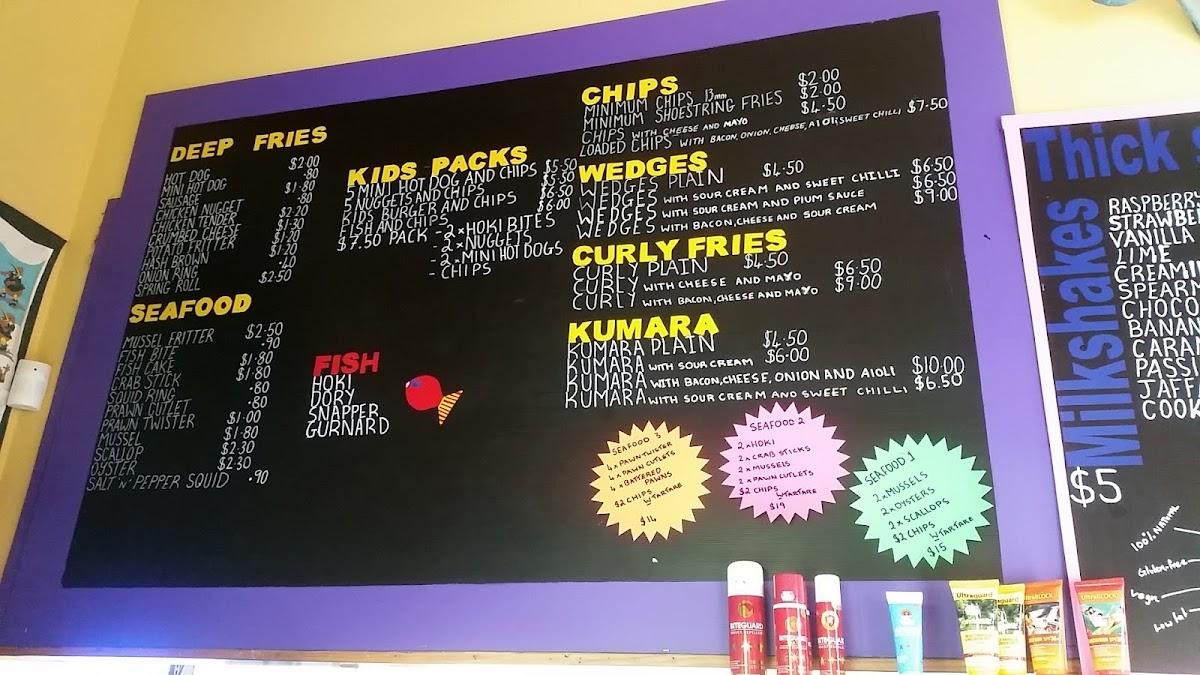 DEEP FRIES
HOT DOG $2.00
MINI HOT DOG .80
SAUSAGE $1.80
CHICKEN NUGGET .80
CHICKEN TENDER $2.20
CRUMBED CHEESE $1.30
FRITTER
HASH BROWN $1.20
ONION RING .40
SPRING ROLL $2.50
SEAFOOD
MUSSEL FRITTER $2.50
FISH BITE .90
FISH CAKE $1.80
CRAB STICK $1.80
SQUID RING .80
PRAWN CUTLET .80
PRAWN TWISTER $1.00
MUSSEL $1.80
SCALLOP $2.30
OYSTER $2.30
SALT 'N' PEPPER SQUID .90
KIDS PACKS
5 MINI HOT DOG AND CHIPS $5.50
5 NUGGETS AND CHIPS
KIDS BURGER AND CHIPS $6.50
FISH AND CHIPS $6.00
$7.50 PACK - 2xHOKI BITES
- 2xNUGGETS
- 2xMINI HOT DOGS
- CHIPS
FISH
HOKI
DORY
SNAPPER
GURNARD
CHIPS
MINIMUM CHIPS 13mm $2.00
MINIMUM SHOESTRING FRIES $2.00
CHIPS WITH CHEESE AND MAYO $4.50
LOADED CHIPS WITH BACON, ONION, CHEESE, AIOLI, SWEET CHILLI $7.50
WEDGES
WEDGES PLAIN $4.50
WEDGES WITH SOUR CREAM AND SWEET CHILLI $6.50
WEDGES WITH SOUR CREAM AND PLUM SAUCE $6.50
WEDGES WITH BACON, CHEESE AND SOUR CREAM $9.00
CURLY FRIES
CURLY PLAIN $4.50
CURLY WITH CHEESE AND MAYO $6.50
CURLY WITH BACON, CHEESE AND MAYO $9.00
KUMARA
KUMARA PLAIN $4.50
KUMARA WITH SOUR CREAM $6.00
KUMARA WITH BACON, CHEESE, ONION AND AIOLI $10.00
KUMARA WITH SOUR CREAM AND SWEET CHILLI $6.50
SEAFOOD 3
4 x PAWN TWISTER
4 x PAWN CUTLETS
4 x BATTERED
PAWNS
$2 CHIPS
W TARTARE
$14
SEAFOOD 2
2 x HOKI
2 x CRAB STICKS
2 x MUSSELS
2 x PAWN CUTLETS
$2 CHIPS
W TARTARE
$19
SEAFOOD 1
2 x MUSSELS
2 x OYSTERS
2 x SCALLOPS
$2 CHIPS
W TARTARE
$15
Thick
Milkshakes
RASPBERRY
STRAWBE
VANILLA
LIME
CREAMI
SPEARM
CHOCO
BANAN
CARAM
PASSI
JAFFA
COOK
$5
100% NATURAL
Gluten-free
Low fat
BITEGUARD
Ultraguard
UltraBLOCK
UltraBLOCK